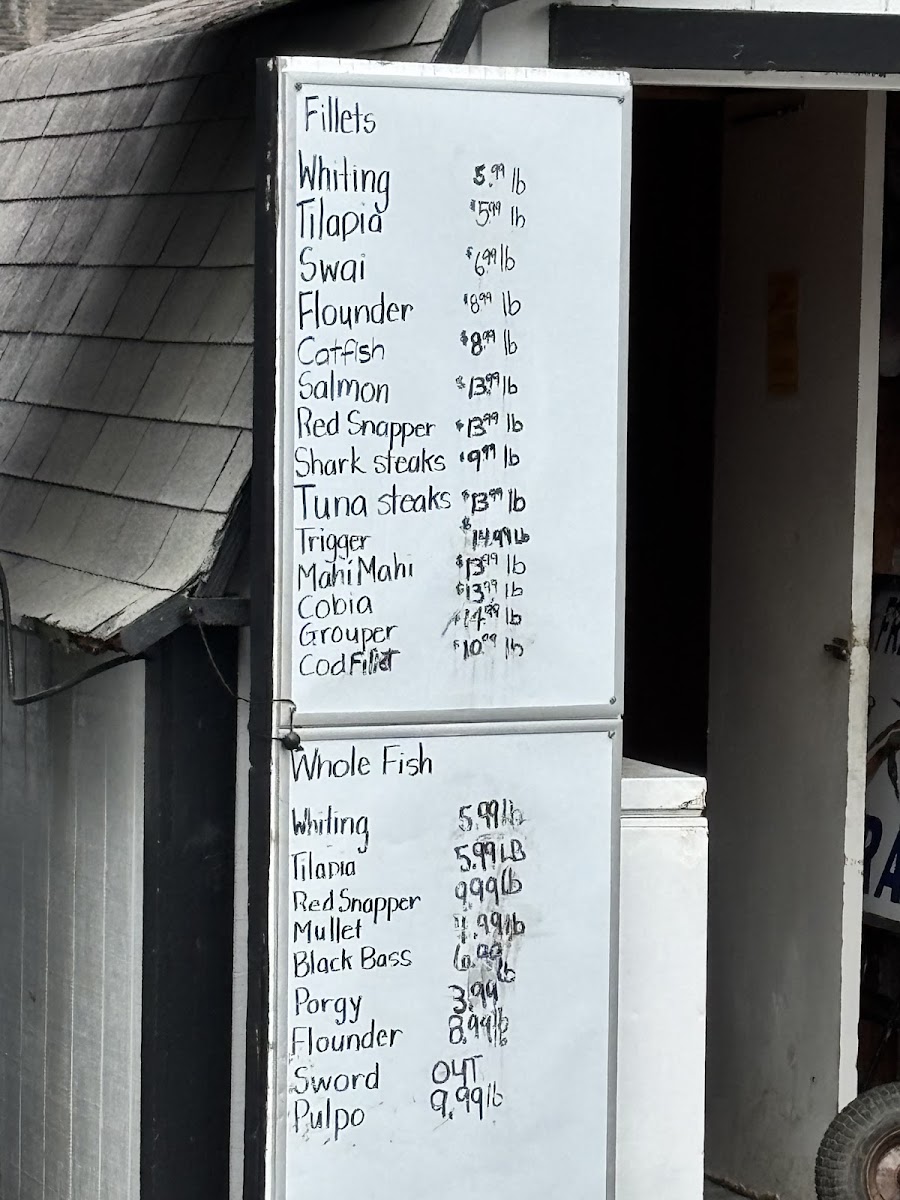 Fillets
Whiting 5.99 lb
Tilapia $5.99 lb
Swai $6.99 lb
Flounder $8.99 lb
Catfish $8.99 lb
Salmon $13.99 lb
Red Snapper $13.99 lb
Shark steaks $9.99 lb
Tuna steaks $13.99 lb
Trigger $14.99 lb
Mahi Mahi $13.99 lb
Cobia $13.99 lb
Grouper $14.99 lb
Cod Fillet $10.99 lb
Whole Fish
Whiting 5.99 lb
Tilapia 5.99 LB
Red Snapper 9.99 lb
Mullet 4.99 lb
Black Bass lb
Porgy 3.99
Flounder 8.99 lb
Sword OUT
Pulpo 9.99 lb